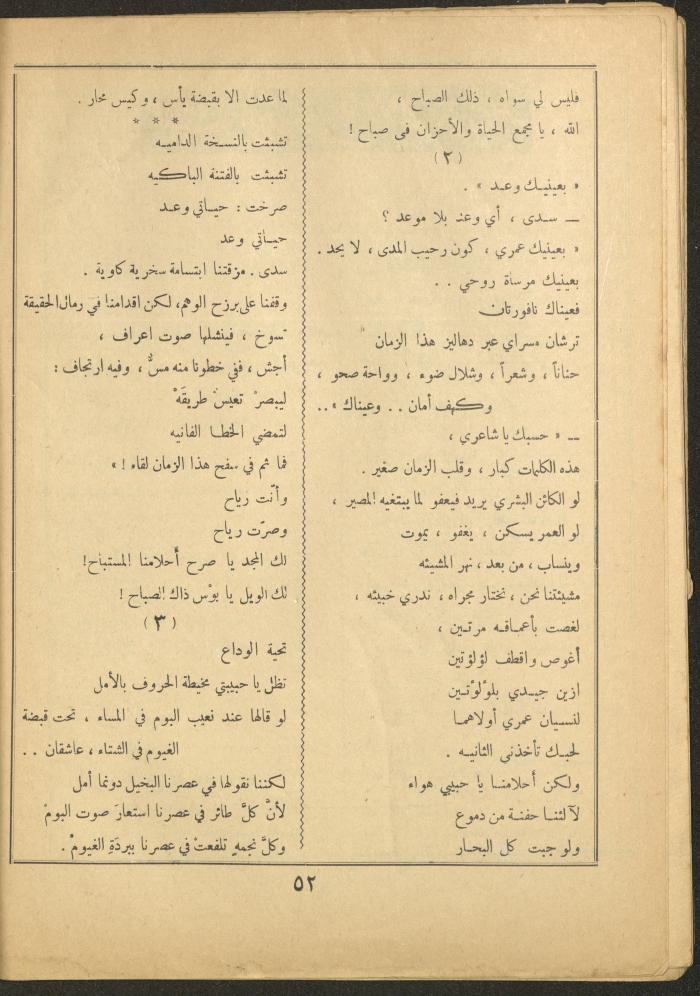 فليس لي سواه ، ذلك الصباح ،
الله ، يا مجمع الحياة والأحزان في صباح !
( ٢ )
« بعينيك وعد » .
— سدى ، أي وعد بلا موعد ؟
« بعينيك عمري ، كون رحيب المدى ، لا يحد .
بعينيك مرساة روحي . .
فعيناك نافورتان
ترشان مسراي عبر دهاليز هذا الزمان
حناناً ، وشعراً ، وشلال ضوء ، وواحة صحو ،
وكهف أمان . . وعيناك » . .
— « حسبك يا شاعري ،
هذه الكلمات كبار ، وقلب الزمان صغير .
لو الكائن البشري يريد فيعفو لما يبتغيه المصير ،
لو العمر يسكن ، يغفو ، يموت
وينساب ، من بعد ، نهر المشيئه
مشيئتنا نحن ، نختار مجراه ، ندري خبيئه ،
لغصت بأعماقه مرتين ،
أغوص واقطف لؤلؤتين
ازين جيدي بلؤلؤتين
لنسيان عمري أولاهما
لحبك تأخذني الثانيه .
ولكن أحلامنا يا حبيبي هواء
لآلئنا حفنة من دموع
ولو جبت كل البحار
لما عدت الا بقبضة يأس ، وكيس محار .
* * *
تشبثت بالنسخة الداميه
تشبثت بالفتنة الباكيه
صرخت : حياتي وعد
حياتي وعد
سدى . مزقتنا ابتسامة سخرية كاوية .
وقفنا على برزخ الوهم، لكن اقدامنا في رمال الحقيقة
تسوخ ، فينشلها صوت اعراف ،
أجش ، ففي خطونا منه مسٌّ ، وفيه ارتجاف :
ليبصرْ تعيسْ طريقَهْ
لتمضي الخطا الفانيه
فما ثم في سفح هذا الزمان لقاء ! »
وأنّت رياح
وصرّت رياح
لك المجد يا صرح أحلامنا المستباح !
لك الويل يا بؤس ذاك الصباح !
( ٣ )
تحية الوداع
نظل يا حبيبتي مخيطة الحروف بالأمل
لو قالها عند نعيب البوم في المساء ، تحت قبضة
الغيوم في الشتاء ، عاشقان . .
لكننا نقولها في عصرنا البخيل دونما أمل
لأنَّ كلَّ طائر في عصرنا استعارَ صوت البومْ
وكلَّ نجمهٍ تلفعتْ في عصرنا ببردَةِ الغيومْ .
٥٢